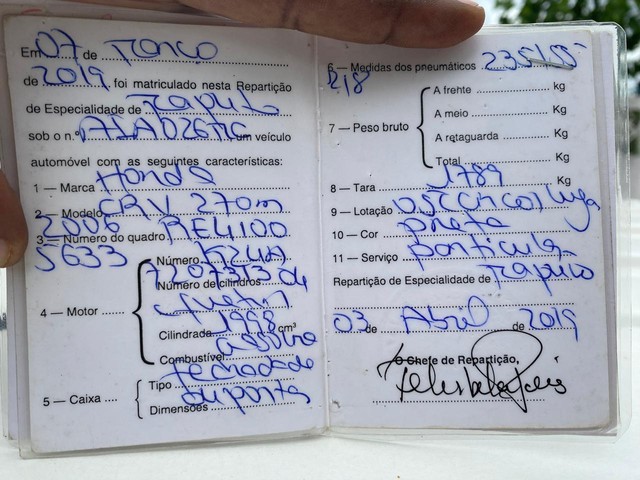 Em 07 de Março
de 2019 foi matriculado nesta Repartição
de Especialidade de Maputo
sob o n.º veículo
automóvel com as seguintes características:
1 — Marca Honda
2 — Modelo CRV
2006
3 — Número do quadro RE4100
5633
4 — Motor
Número
Número de cilindros
7207313 de
Cilindrada 1998 cm³
Combustível
5 — Caixa
Tipo fechada de
Dimensões
6 — Medidas dos pneumáticos 235/55
R18
7 — Peso bruto
A frente kg
A meio kg
A retaguarda kg
Total Kg
8 — Tara 1789 Kg
9 — Lotação
10 — Cor preta
11 — Serviço particular
Repartição de Especialidade de Maputo
03 de Abril de 2019
O Chefe de Repartição,